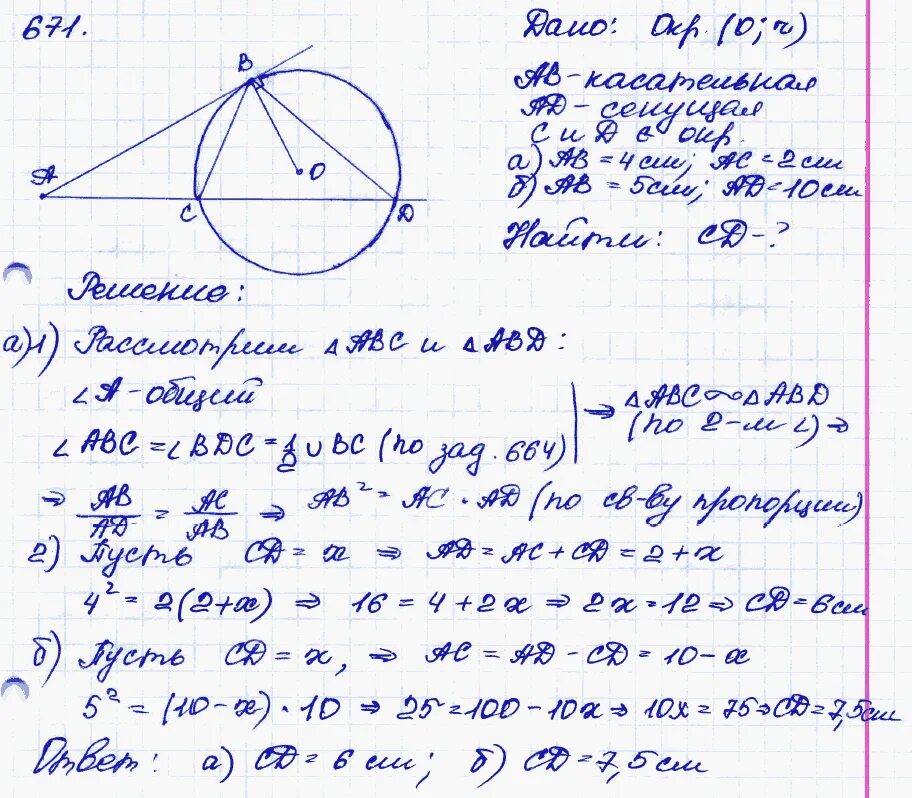 671.
B
A
O
C
D
Дано: Окр. (O; r)
AB - касательная
AD - секущая
C и D ∈ окр.
а) AB = 4 см; AC = 2 см
б) AB = 5 см; AD = 10 см
Найти: CD - ?
Решение:
а) 1) Рассмотрим △ABC и △ABD:
∠A - общий
∠ABC = ∠BDC = 1/2 ∪BC (по зад. 664)
⇒ △ABC ∾ △ABD
(по 2-м ∠) ⇒
⇒ AB/AD = AC/AB ⇒ AB² = AC · AD (по св-ву пропорции)
2) Пусть CD = x ⇒ AD = AC + CD = 2 + x
4² = 2(2+x) ⇒ 16 = 4 + 2x ⇒ 2x = 12 ⇒ CD = 6 см
б) Пусть CD = x, ⇒ AC = AD - CD = 10 - x
5² = (10 - x) · 10 ⇒ 25 = 100 - 10x ⇒ 10x = 75 ⇒ CD = 7,5 см
Ответ: а) CD = 6 см; б) CD = 7,5 см